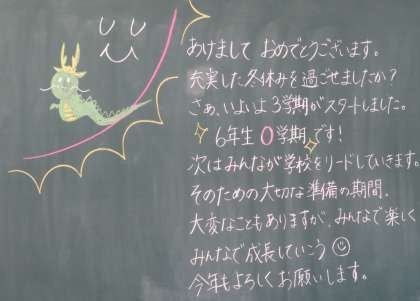 あけまして おめでとうございます。
充実した冬休みを過ごせましたか？
さぁ、いよいよ3学期がスタートしました。
6年生0学期です！
次はみんなが学校をリードしていきます。
そのための大切な準備の期間、
大変なこともありますが、みんなで楽しく
みんなで成長していこう
今年もよろしくお願いします。